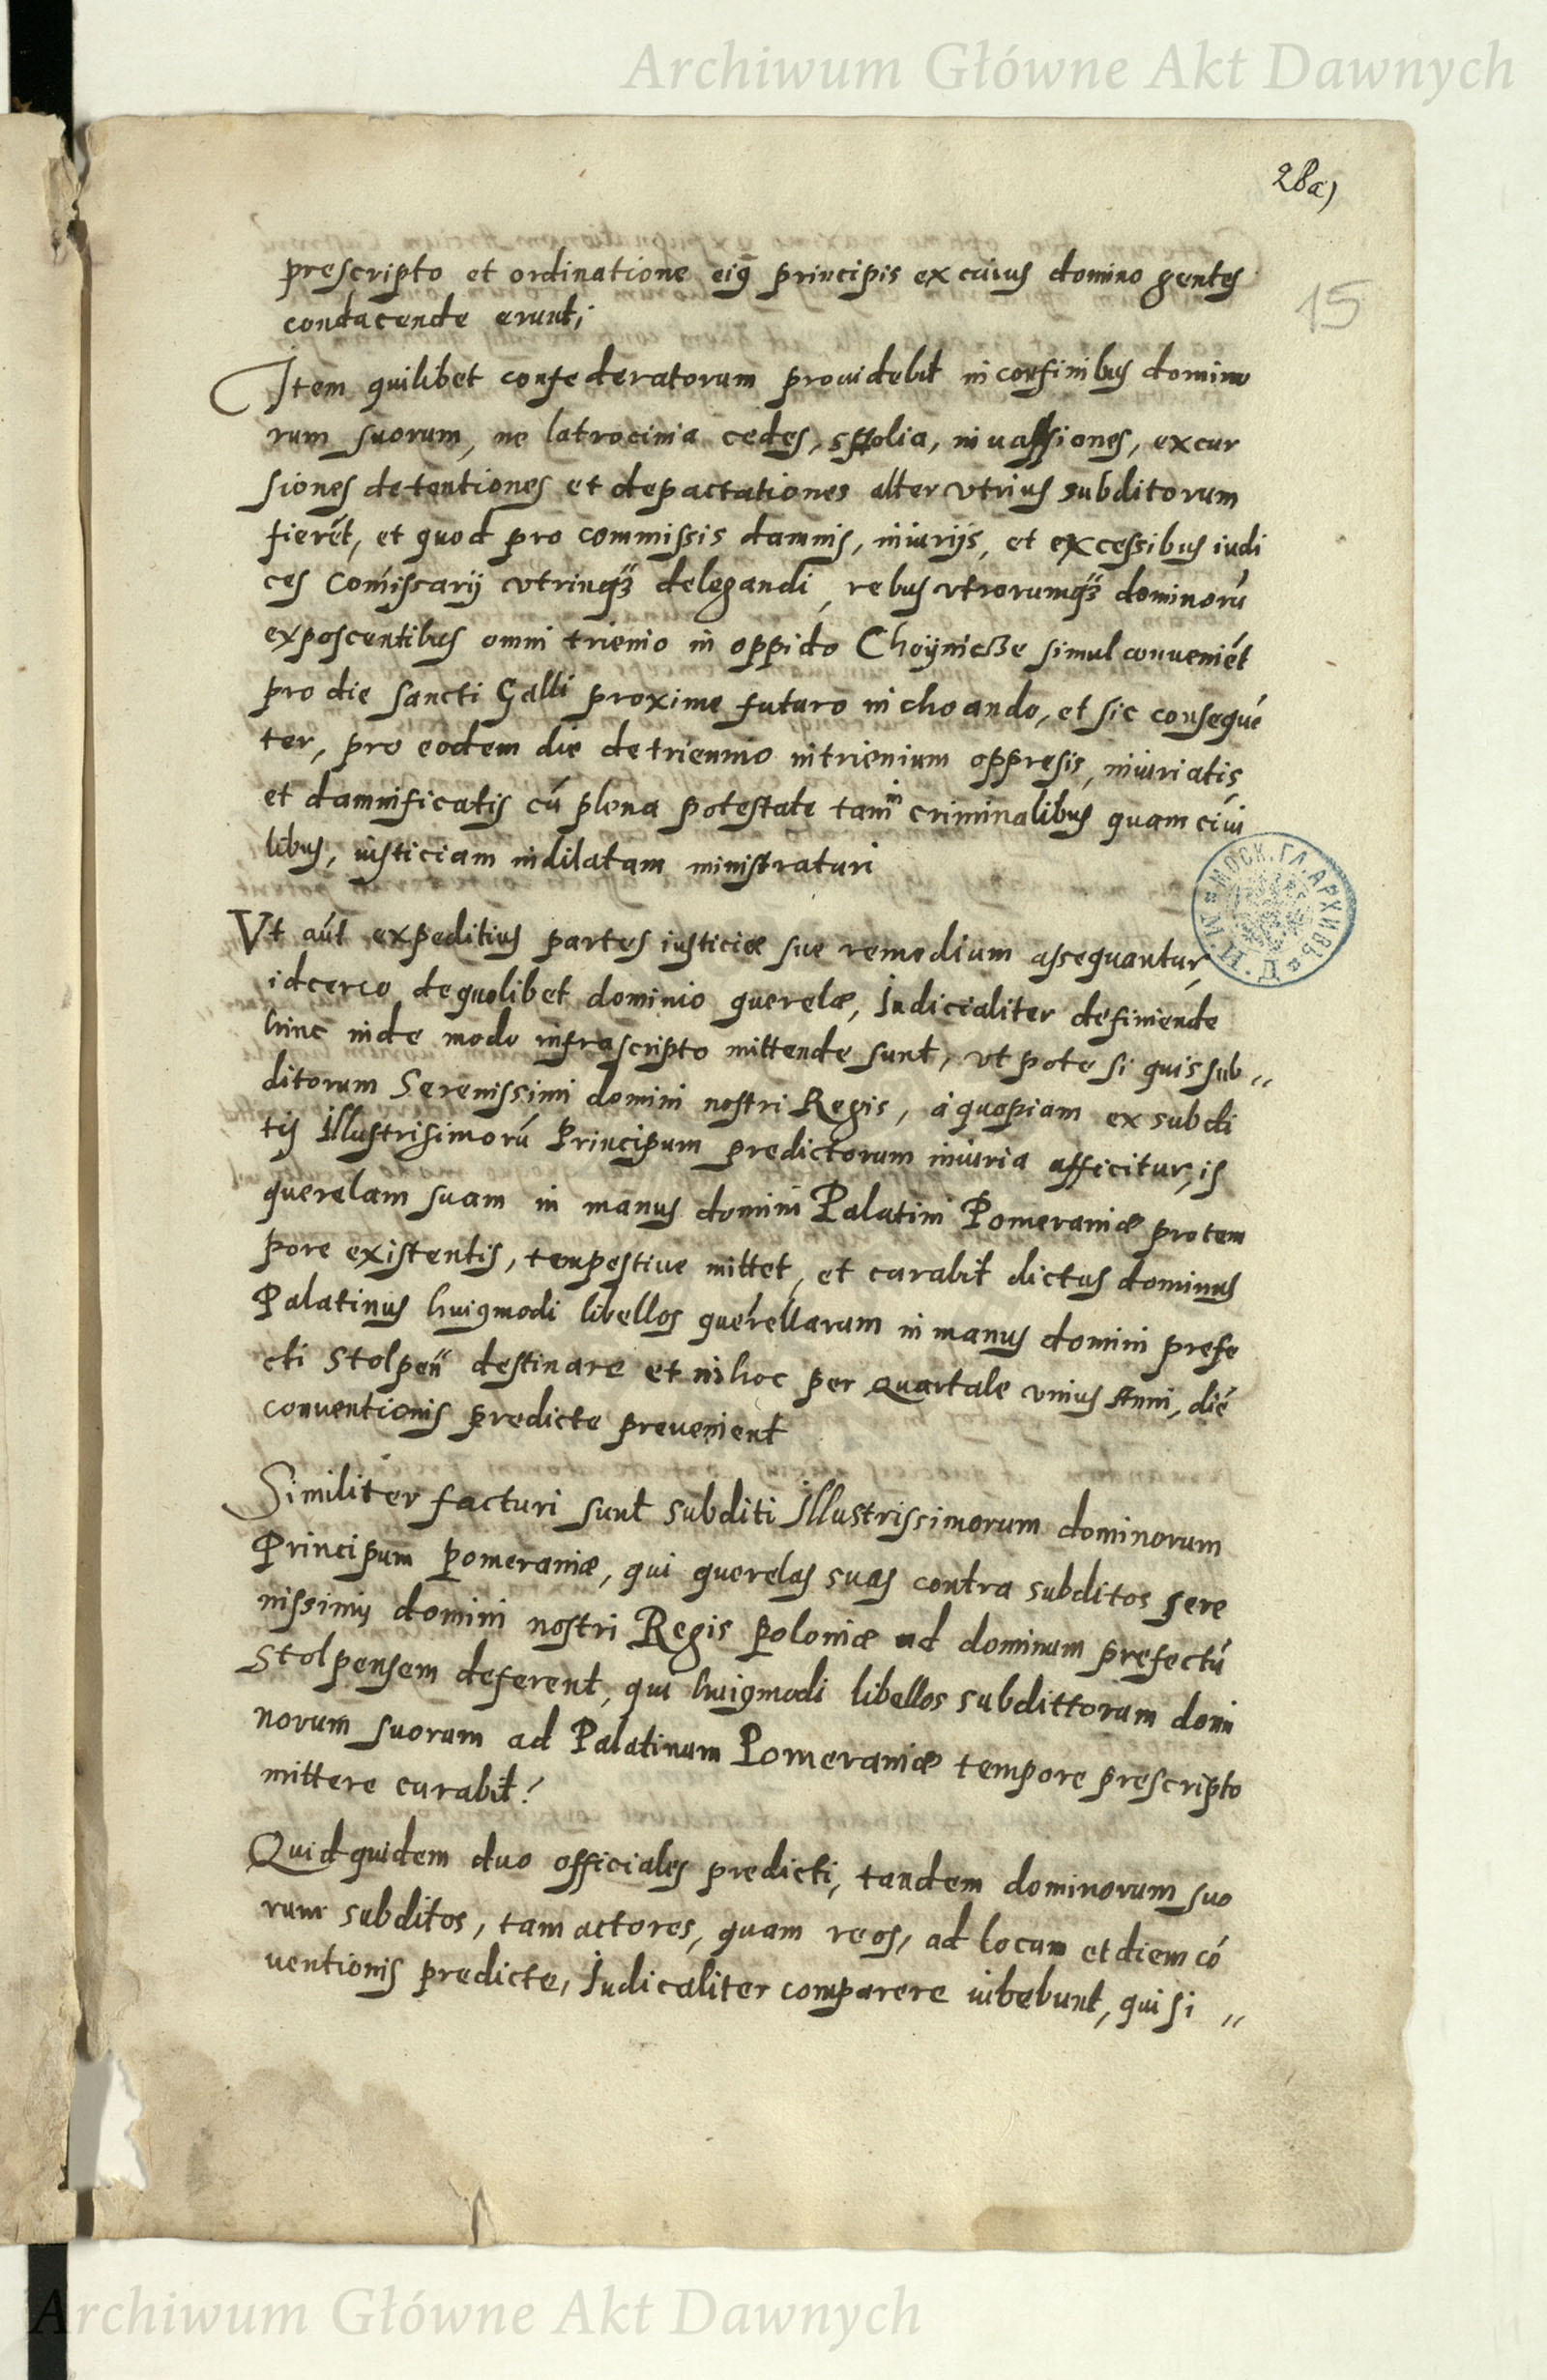 Archiwum Główne Akt Dawnych
28a)
15
prescripto et ordinatione eiꝰ principis ex cuius domino gentes
conducende erunt;
Item quilibet confederatorum prouidebit in confinibus domino
rum suorum, ne latrocinia cedes, spolia, inuasiones, excur
siones detentiones et depactationes alter vtrius subditorum
fierēt, et quod pro commissis damnis, iniurijs, et excessibus iudi
ces Com̄issarij vtrinqꝫ delegandi, rebus vtrorumqꝫ dominorū
exposcentibus omni trienio in oppido Choÿnicze simul conueniēt
pro die sancti Galli proxime futuro inchoando, et sic consequē
ter, pro eodem die de triennio in trienium oppresis, iniuriatis,
et damnificatis cū plena potestate tam in criminalibus quam ciui
libus, iusticiam indilatam ministraturi
Vt aūt expeditius partes iusticiæ sue remedium assequantur,
idcerco de quolibet dominio querelæ, Iudicialiter definiende
hinc inde modo infrascripto mittende sunt, vt pote si quis sub„
ditorum Serenissimi domini nostri Regis, a quopiam ex subdi
tis Illustrisimorū Principum predictorum iniuria afficitur, is
querelam suam in manus domini Palatini Pomeraniæ pro tem
pore existentis, tempestiue mittet, et curabit dictus dominus
Palatinus huiꝰmodi libellos querellarum in manus domini prefe
cti Stolpen̄ destinare et in hoc per quartale vnius Anni, diē
conuentionis predicte preuenient
Similiter facturi sunt subditi Illustrissimorum dominorum
Principum Pomeraniæ, qui querelas suas contra subditos sere
nissimij domini nostri Regis Poloniæ ad dominum prefectū
Stolpensem deferent, qui huiꝰmodi libellos subdittorum domi
norum suorum ad Palatinum Pomeraniæ tempore prescripto
mittere curabit.
Quid quidem duo officiales predicti, tandem dominorum suo
rum subditos, tam actores, quam reos, ad locum et diem cō
uentionis predicte, Iudicaliter comparere iubebunt, qui si „
МОСК. ГЛ. АРХИВЪ
М. И. Д.
Archiwum Główne Akt Dawnych